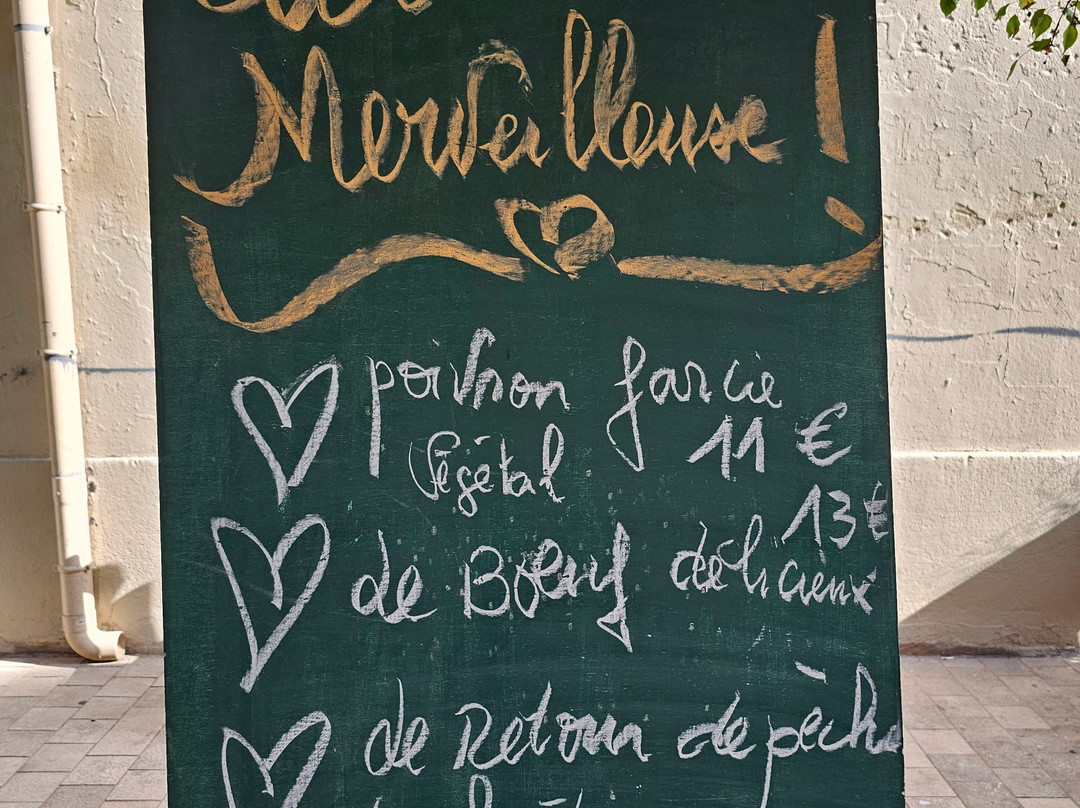 Merveilleuse !
poivron farcie
végétal 11 €
13 €
de Bœuf délicieux
de Retour de pêche